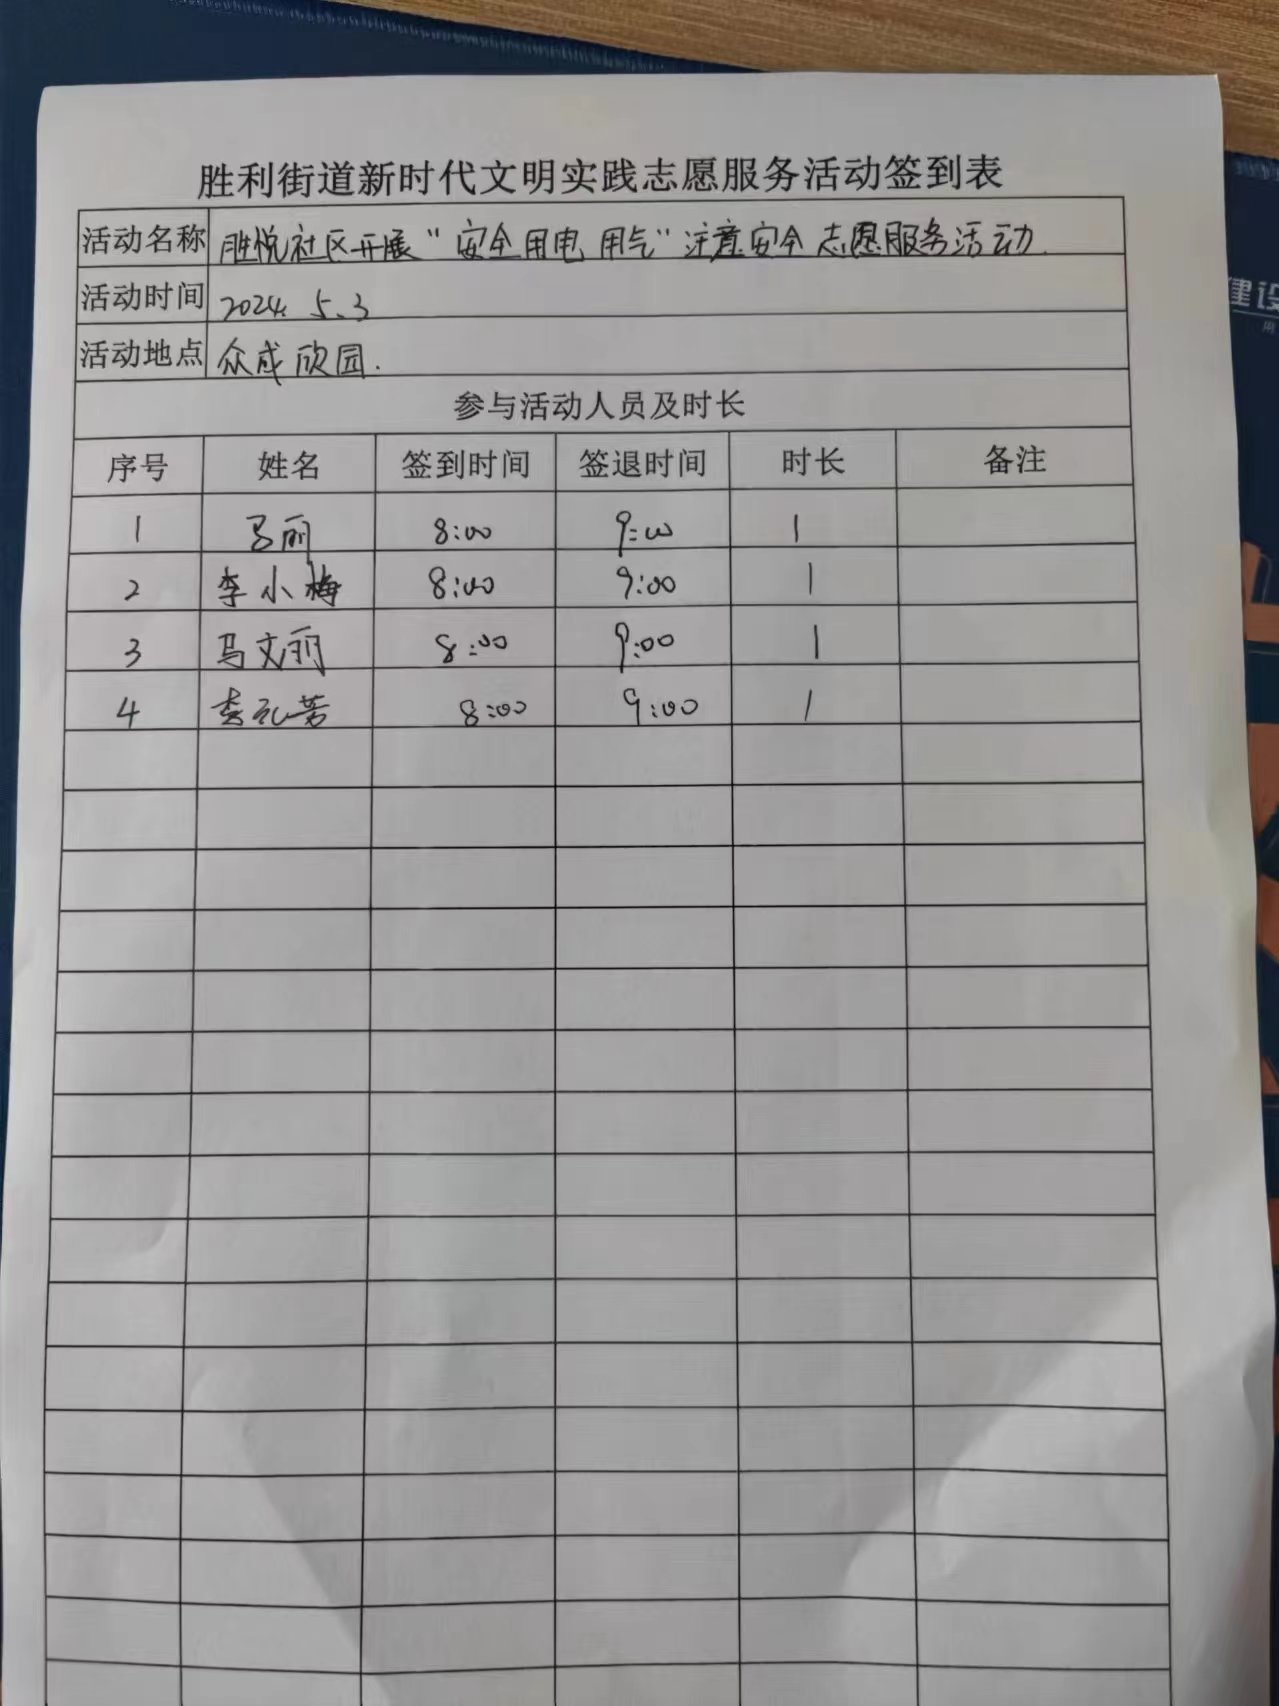 胜利街道新时代文明实践志愿服务活动签到表
活动名称 胜悦社区开展“安全用电 用气”注意安全志愿服务活动.
活动时间 2024. 5.3
活动地点 众成欣园.
参与活动人员及时长
序号 姓名 签到时间 签退时间 时长 备注
1 马丽 8:00 9:00 1
2 李小梅 8:00 9:00 1
3 马文丽 8:00 9:00 1
4 李礼芳 8:00 9:00 1
建设